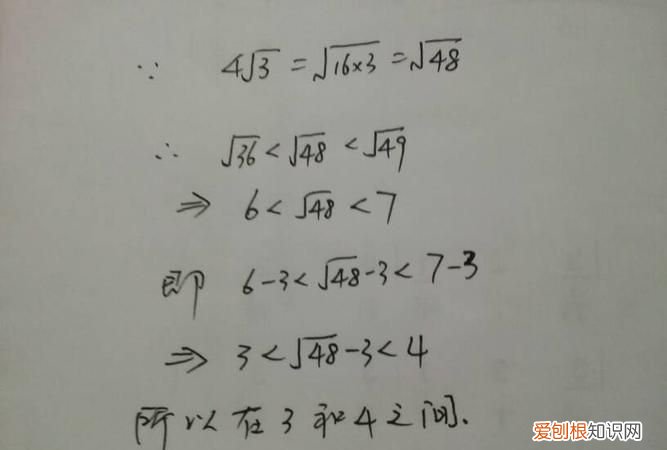 ∵ 4√3 = √16×3 = √48
∴ √36 < √48 < √49
⇒ 6 < √48 < 7
即 6-3 < √48-3 < 7-3
⇒ 3 < √48-3 < 4
所以在3和4之间.
爱刨根知识网